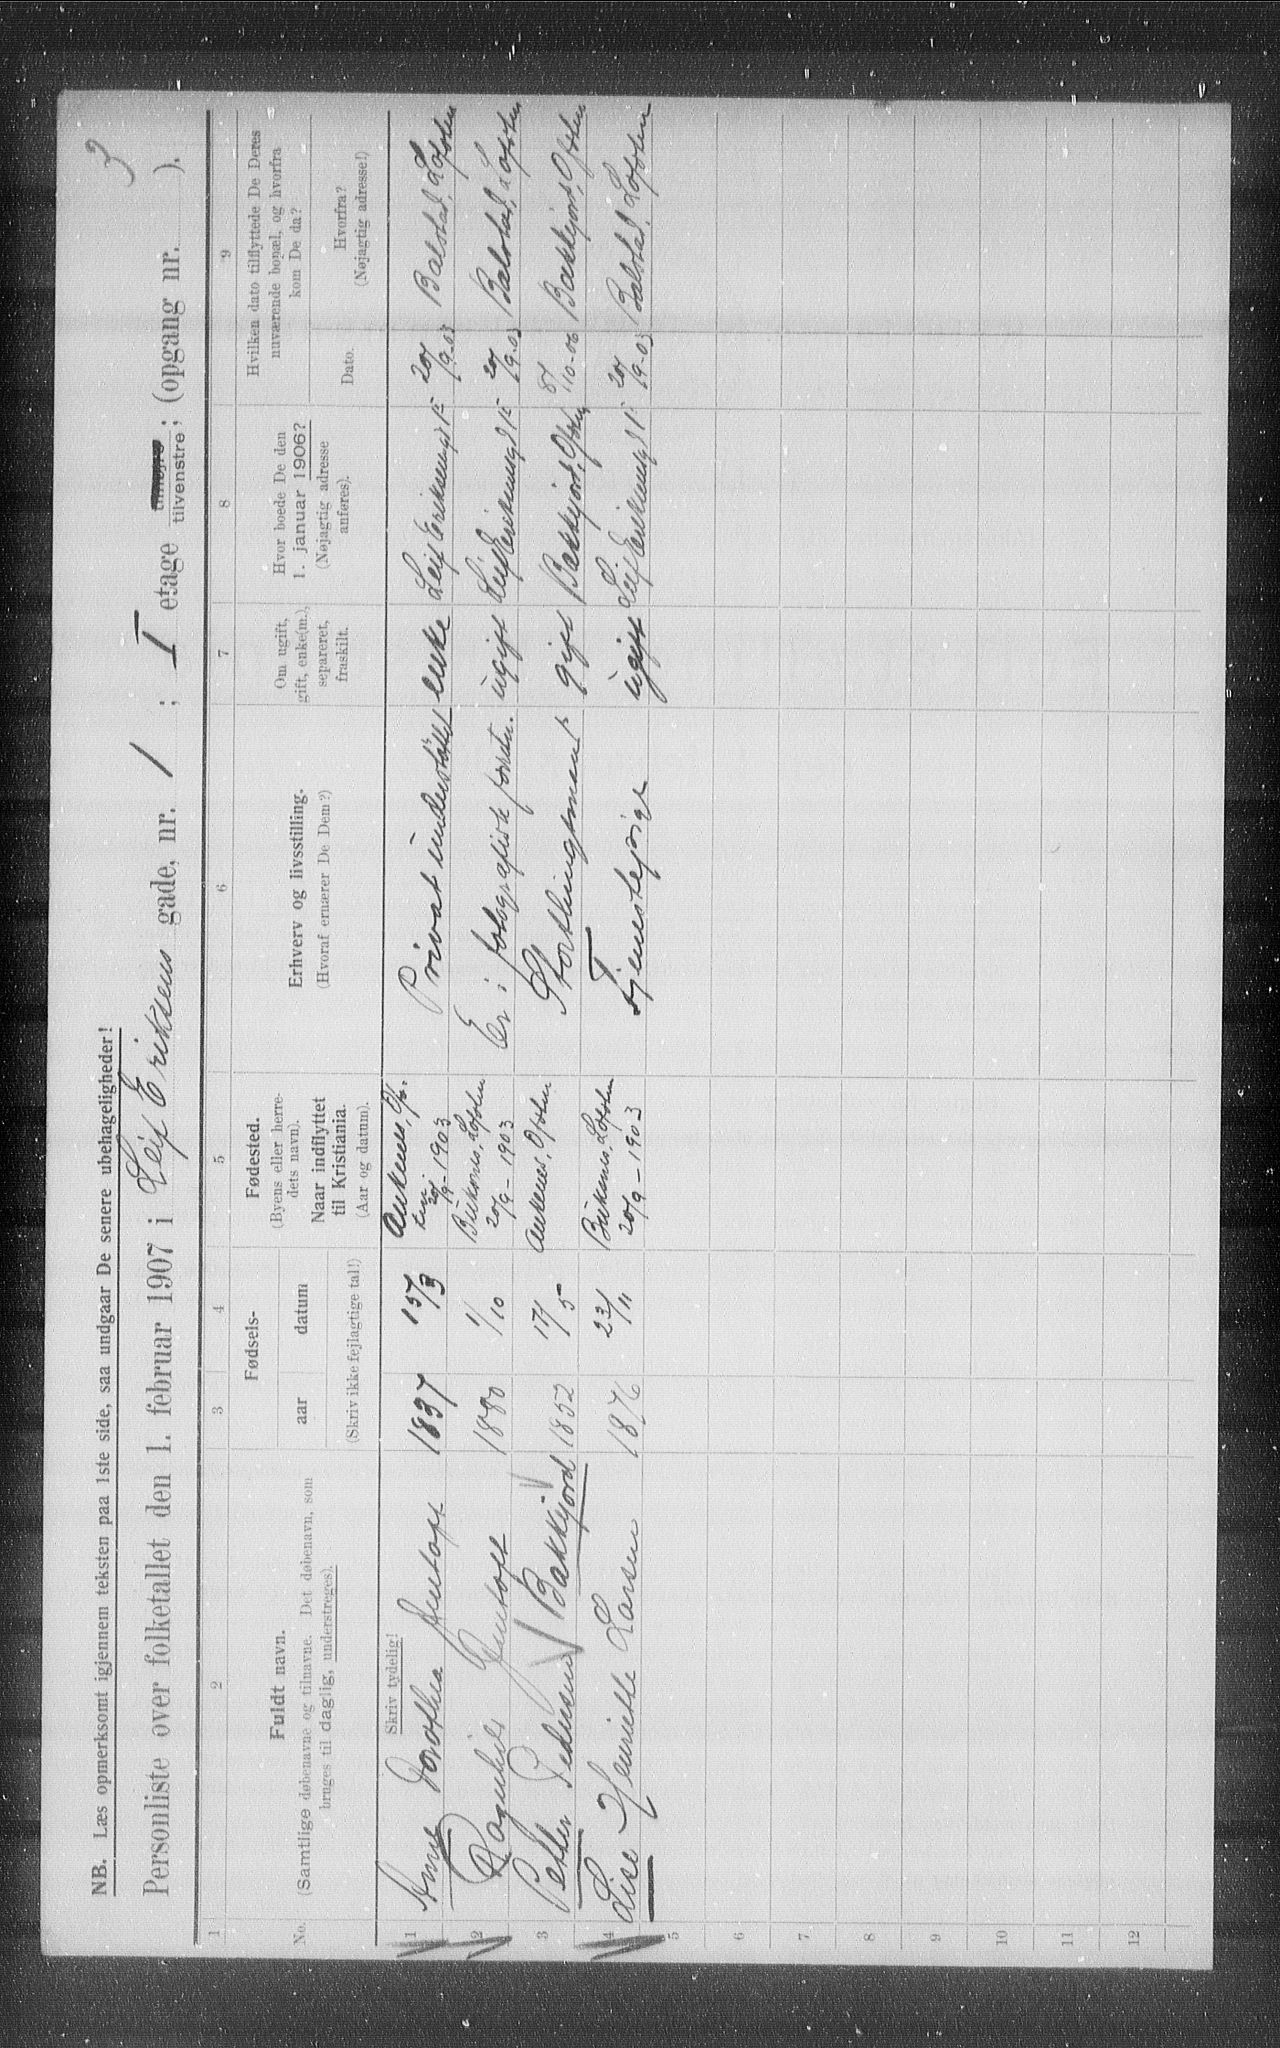 3
NB. Læs opmerksomt igjennem teksten paa 1ste side, saa undgaar De senere ubehageligheder!
Personliste over folketallet den 1. februar 1907 i Leif Eriksens gade, nr. 1 ; I etage tilvenstre; (opgang nr. ).
1 2 3 4 5 6 7 8 9
No.
Fuldt navn.
(Samtlige døbenavne og tilnavne. Det døbenavn, som
bruges til daglig, understreges).
Skriv tydelig!
Fødsels-
aar datum
(Skriv ikke fejlagtige tal!)
Fødested.
(Byens eller herre-
dets navn).
Naar indflyttet
til Kristiania.
(Aar og datum).
Erhverv og livsstilling.
(Hvoraf ernærer De Dem?)
Om ugift,
gift, enke(m.),
separeret,
fraskilt.
Hvor boede De den
1. januar 1906?
(Nøjagtig adresse
anføres).
Hvilken dato tilflyttede De Deres
nuværende bopæl, og hvorfra
kom De da?
Dato.
Hvorfra?
(Nøjagtig adresse!)
1 Anne Dorothea 1837 15/3 Ankenes, 20/9-1903 Privat understøttet enke Leif Eriksensgd 1 20/9-03 Balstad, Lofoten
2 Ragnhild 1880 1/10 Buksnes, Lofoten 20/9-1903 Er i fotografisk forretn. ugift Leif Eriksensgd 1 20/9-03 Balstad, Lofoten
3 Petter Pedersen Bakkejord 1852 17/5 Ankenes, Ofoten Storthingsmand gift Bakkejord, Ofoten 8/10-06 Bakkejord, Ofoten
4 Lise Henriette Larsen 1876 23/11 Buksnes, Lofoten 20/9-1903 Tjenestepige ugift Leif Eriksensgd 1 20/9-03 Balstad, Lofoten
5
6
7
8
9
10
11
12